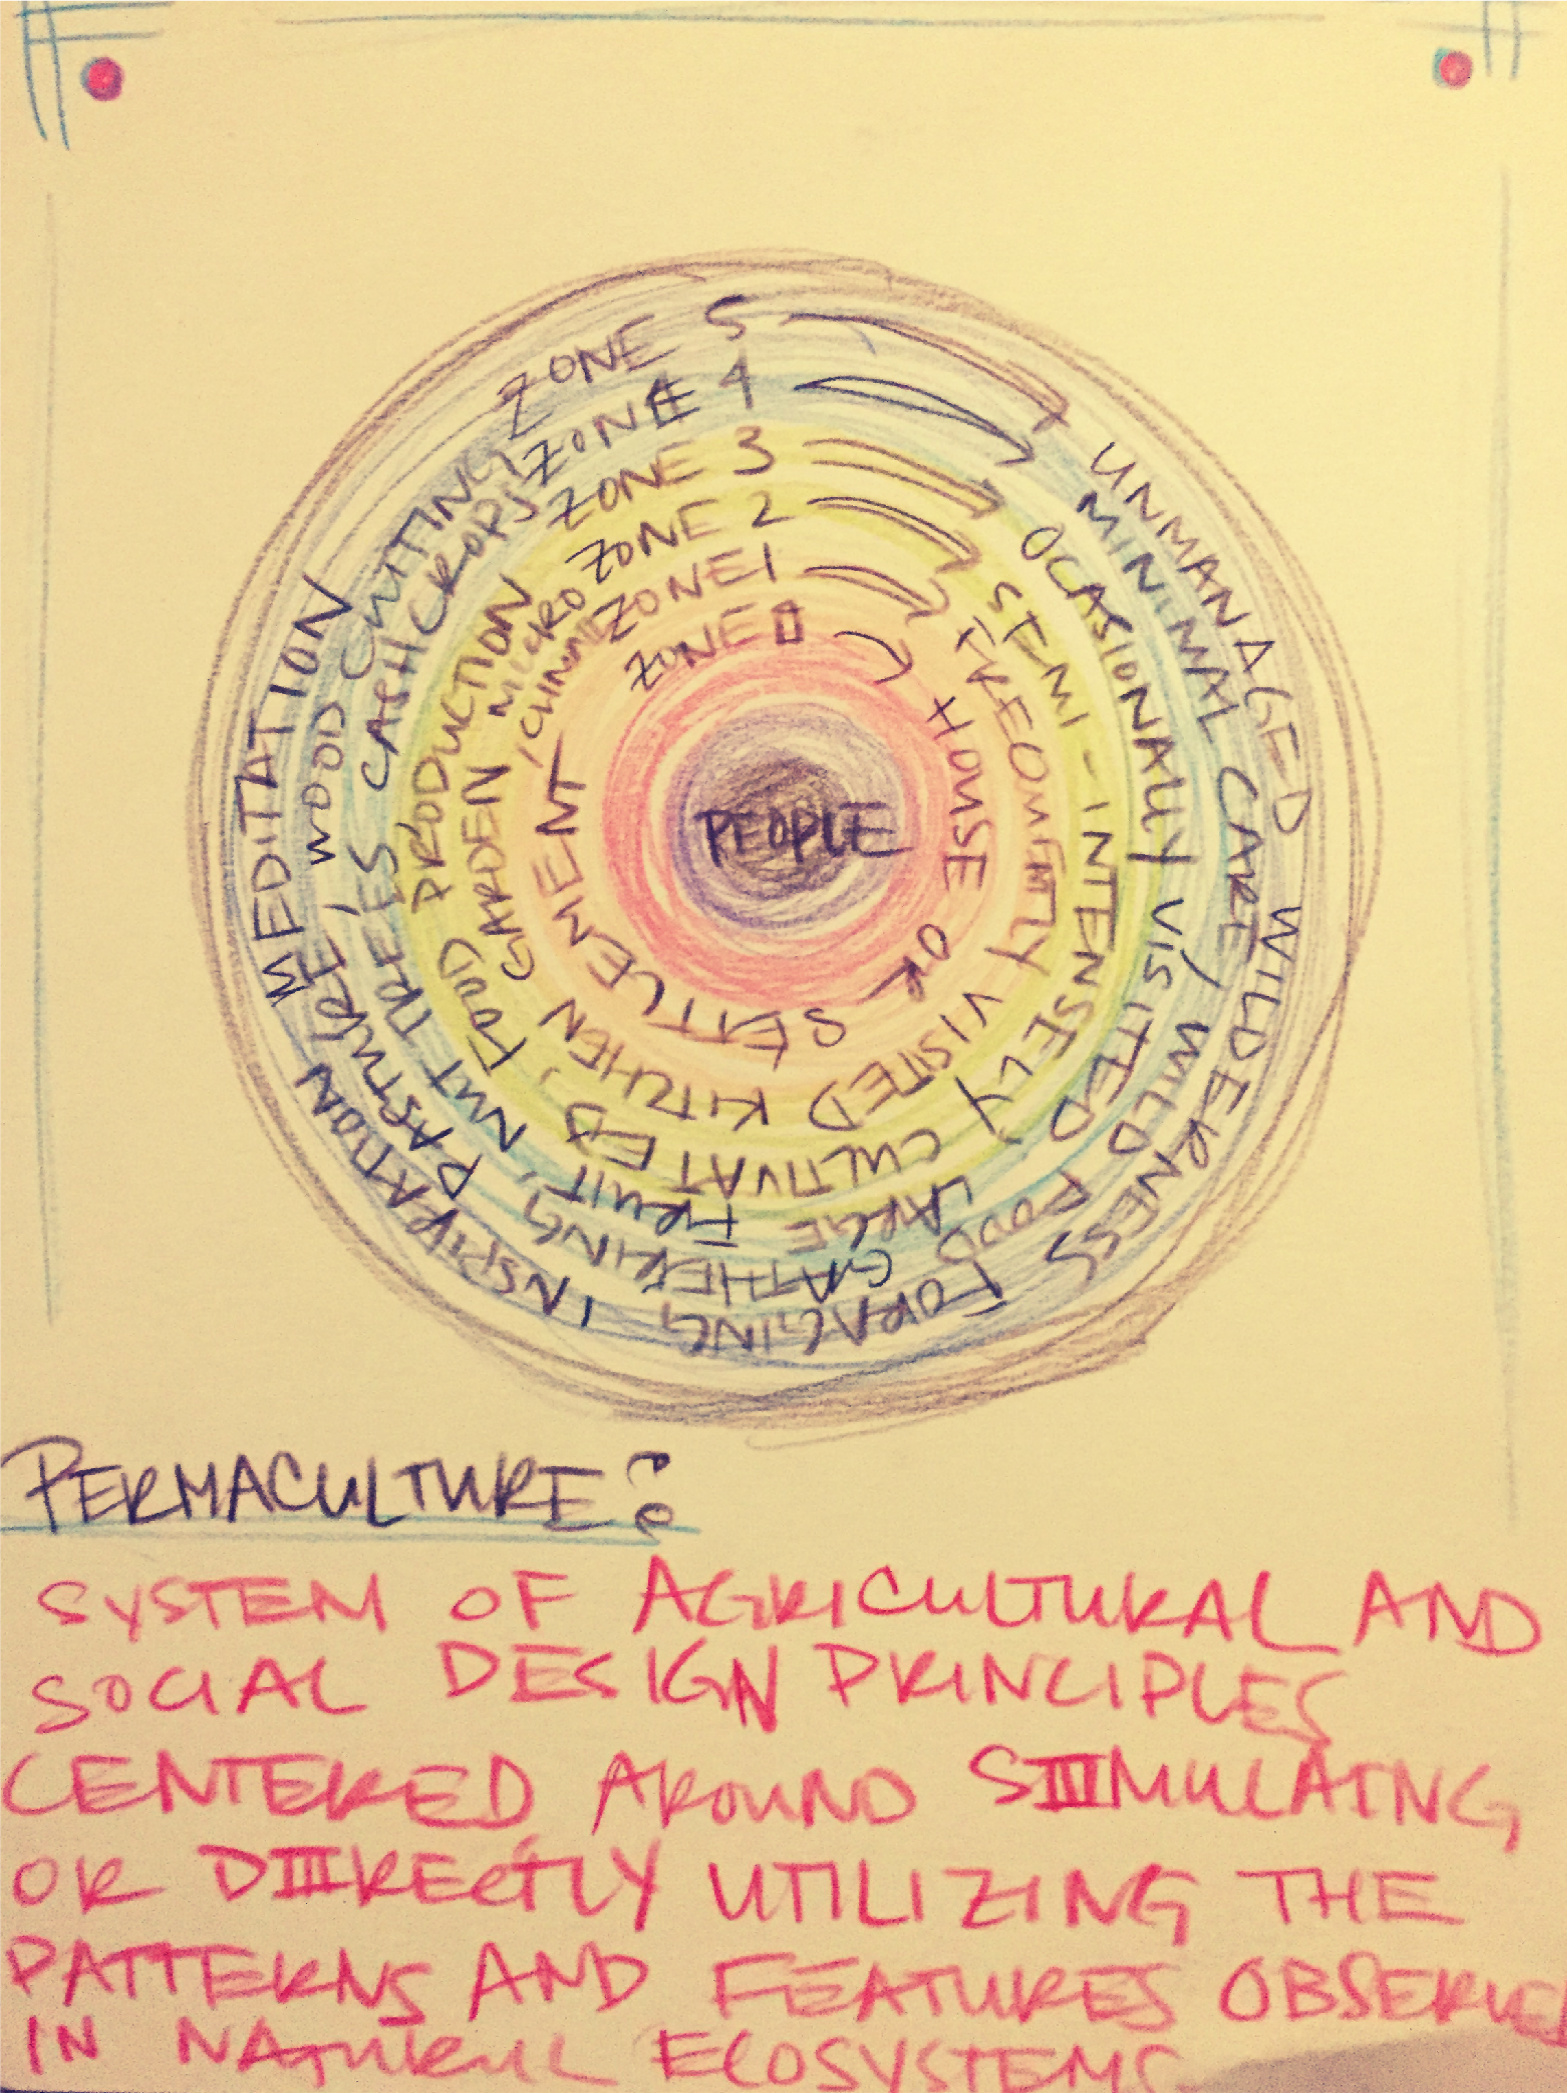 ZONE 5 UNMANAGED WILDERNESS FORAGING INSPIRATION MEDITATION
ZONE 4 MINIMAL CARE/ WILD FOOD GATHERING, PASTURE, WOOD CUTTING
ZONE 3 OCASIONALLY VISITED LARGE FRUIT, NUT TREES CASH CROPS
ZONE 2 SEMI-INTENSELY CULTIVATED, FOOD PRODUCTION
ZONE 1 FREQUENTLY VISITED KITCHEN GARDEN MICRO CLIMATE
ZONE 0 HOUSE OR SETTLEMENT
PEOPLE
PERMACULTURE:
SYSTEM OF AGRICULTURAL AND
SOCIAL DESIGN PRINCIPLES
CENTERED AROUND SIMULAING
OR DIRECTLY UTILIZING THE
PATTERNS AND FEATURES OBSERVED
IN NATURUL ECOSYSTEMS